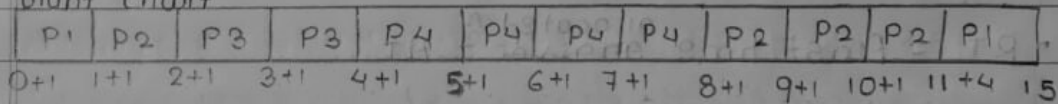 P1 P2 P3 P3 P4 P4 P4 P4 P2 P2 P2 P1
0+1 1+1 2+1 3+1 4+1 5+1 6+1 7+1 8+1 9+1 10+1 11+4 15